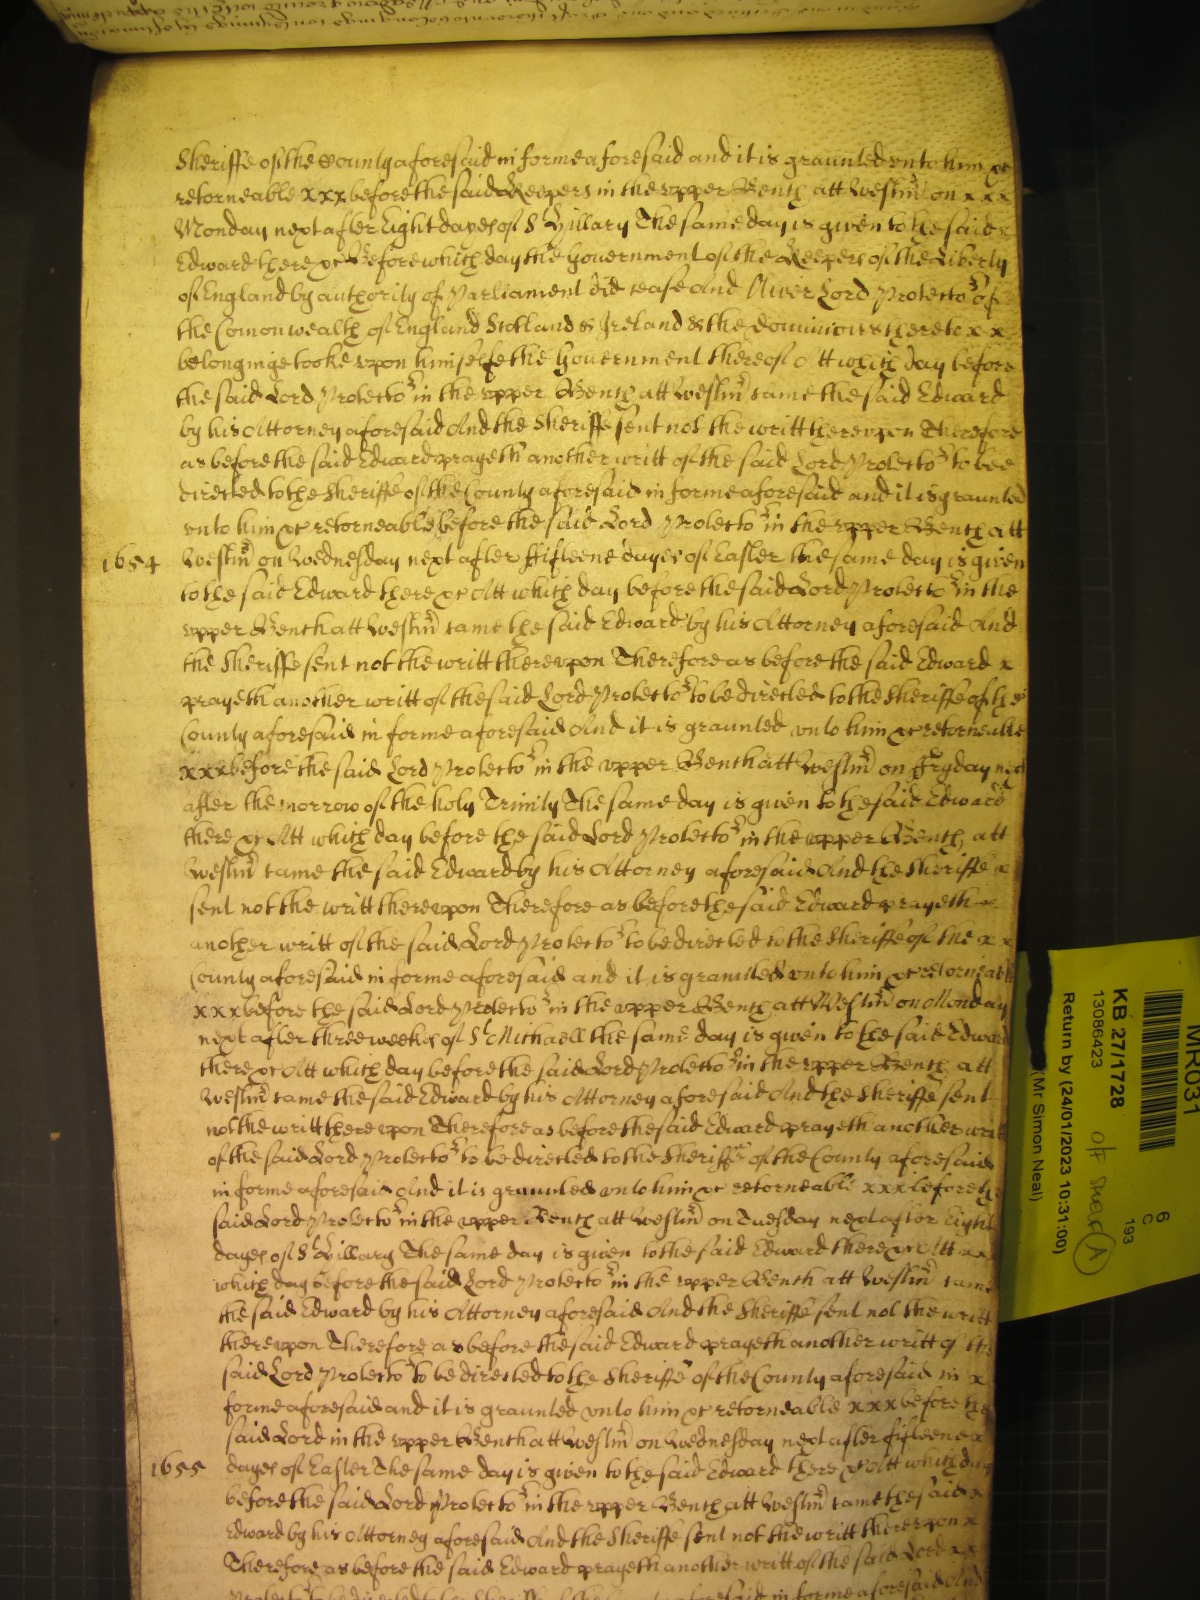 Sheriffe of the County aforesaid in forme aforesaid and it is graunted vnto him &c
retorneable xxx before the said Keepers in the vpper Bench att Westm̄ on xxx
Monday next after Eight dayes of St Hillary The same day is given to the said x
Edward there &c Before which day the Government of the Keepers of the Liberty
of England by authority of Parliament did cease And Oliver Lord Protector of
the Comonwealth of England Scotland & Ireland & the dominions thereto x x
belonginge tooke vpon himselfe the Government thereof Att which day before
the said Lord Protector in the vpper Bench att Westm̄ came the said Edward
by his Attorney aforesaid And the Sheriffe sent not the writt therevpon Therefore
as before the said Edward prayeth another writt of the said Lord Protector to bee
directed to the Sheriffe of the County aforesaid in forme aforesaid and it is graunted
vnto him &c retorneable before the said Lord Protector in the vpper Bench att
1654 Westm̄ on Wednesday next after ffifteene dayes of Easter the same day is given
to the said Edward there &c Att which day before the said Lord Protector in the
vpper Bench att Westm̄ came the said Edward by his Attorney aforesaid And
the Sheriffe sent not the writt therevpon Therefore as before the said Edward x
prayeth another writt of the said Lord Protector to be directed to the Sheriffe of the
County aforesaid in forme aforesaid And it is graunted vnto him &c retorneable
xxx before the said Lord Protector in the vpper Bench att Westm̄ on ffryday next
after the morrow of the holy Trinity The same day is given to the said Edward
there &c Att which day before the said Lord Protector in the vpper Bench att
Westm̄ came the said Edward by his Attorney aforesaid And the Sheriffe x
sent not the writt therevpon Therefore as before the said Edward prayeth
another writt of the said Lord Protector to be directed to the Sheriffe of the x x
County aforesaid in forme aforesaid and it is graunted vnto him &c retorneable
xxx before the said Lord Protector in the vpper Bench att Westm̄ on Monday
next after three weekes of St Michaell the same day is given to the said Edward
there &c Att which day before the said Lord Protector in the vpper Bench att
Westm̄ came the said Edward by his Attorney aforesaid And the Sheriffe sent
not the writt therevpon Therefore as before the said Edward prayeth another writt
of the said Lord Protector to be directed to the Sheriffe of the County aforesaid
in forme aforesaid And it is graunted vnto him &c retorneable xxx before the
said Lord Protector in the vpper Bench att Westm̄ on Tuesday next after Eight
dayes of St Hillary The same day is given to the said Edward there &c Att xx
which day before the said Lord Protector in the vpper Bench att Westm̄ came
the said Edward by his Attorney aforesaid And the Sheriffe sent not the writt
therevpon Therefore as before the said Edward prayeth another writt of the
said Lord Protector to be directed to the Sheriffe of the County aforesaid in x
forme aforesaid and it is graunted vnto him &c retorneable xxx before the
said Lord in the vpper Bench att Westm̄ on Wednesday next after fifteene x
1655 dayes of Easter The same day is given to the said Edward there &c Att which day
before the said Lord Protector in the vpper Bench att Westm̄ came the said x
Edward by his Attorney aforesaid And the Sheriffe sent not the writt therevpon x
Therefore as before the said Edward prayeth another writt of the said Lord xx
Protector to be directed to the Sheriffe of the County aforesaid in forme aforesaid And
MR031
6
C
193
KB 27/1728
13086423
off shelf A
Return by (24/01/2023 10:31:00)
(Mr Simon Neal)